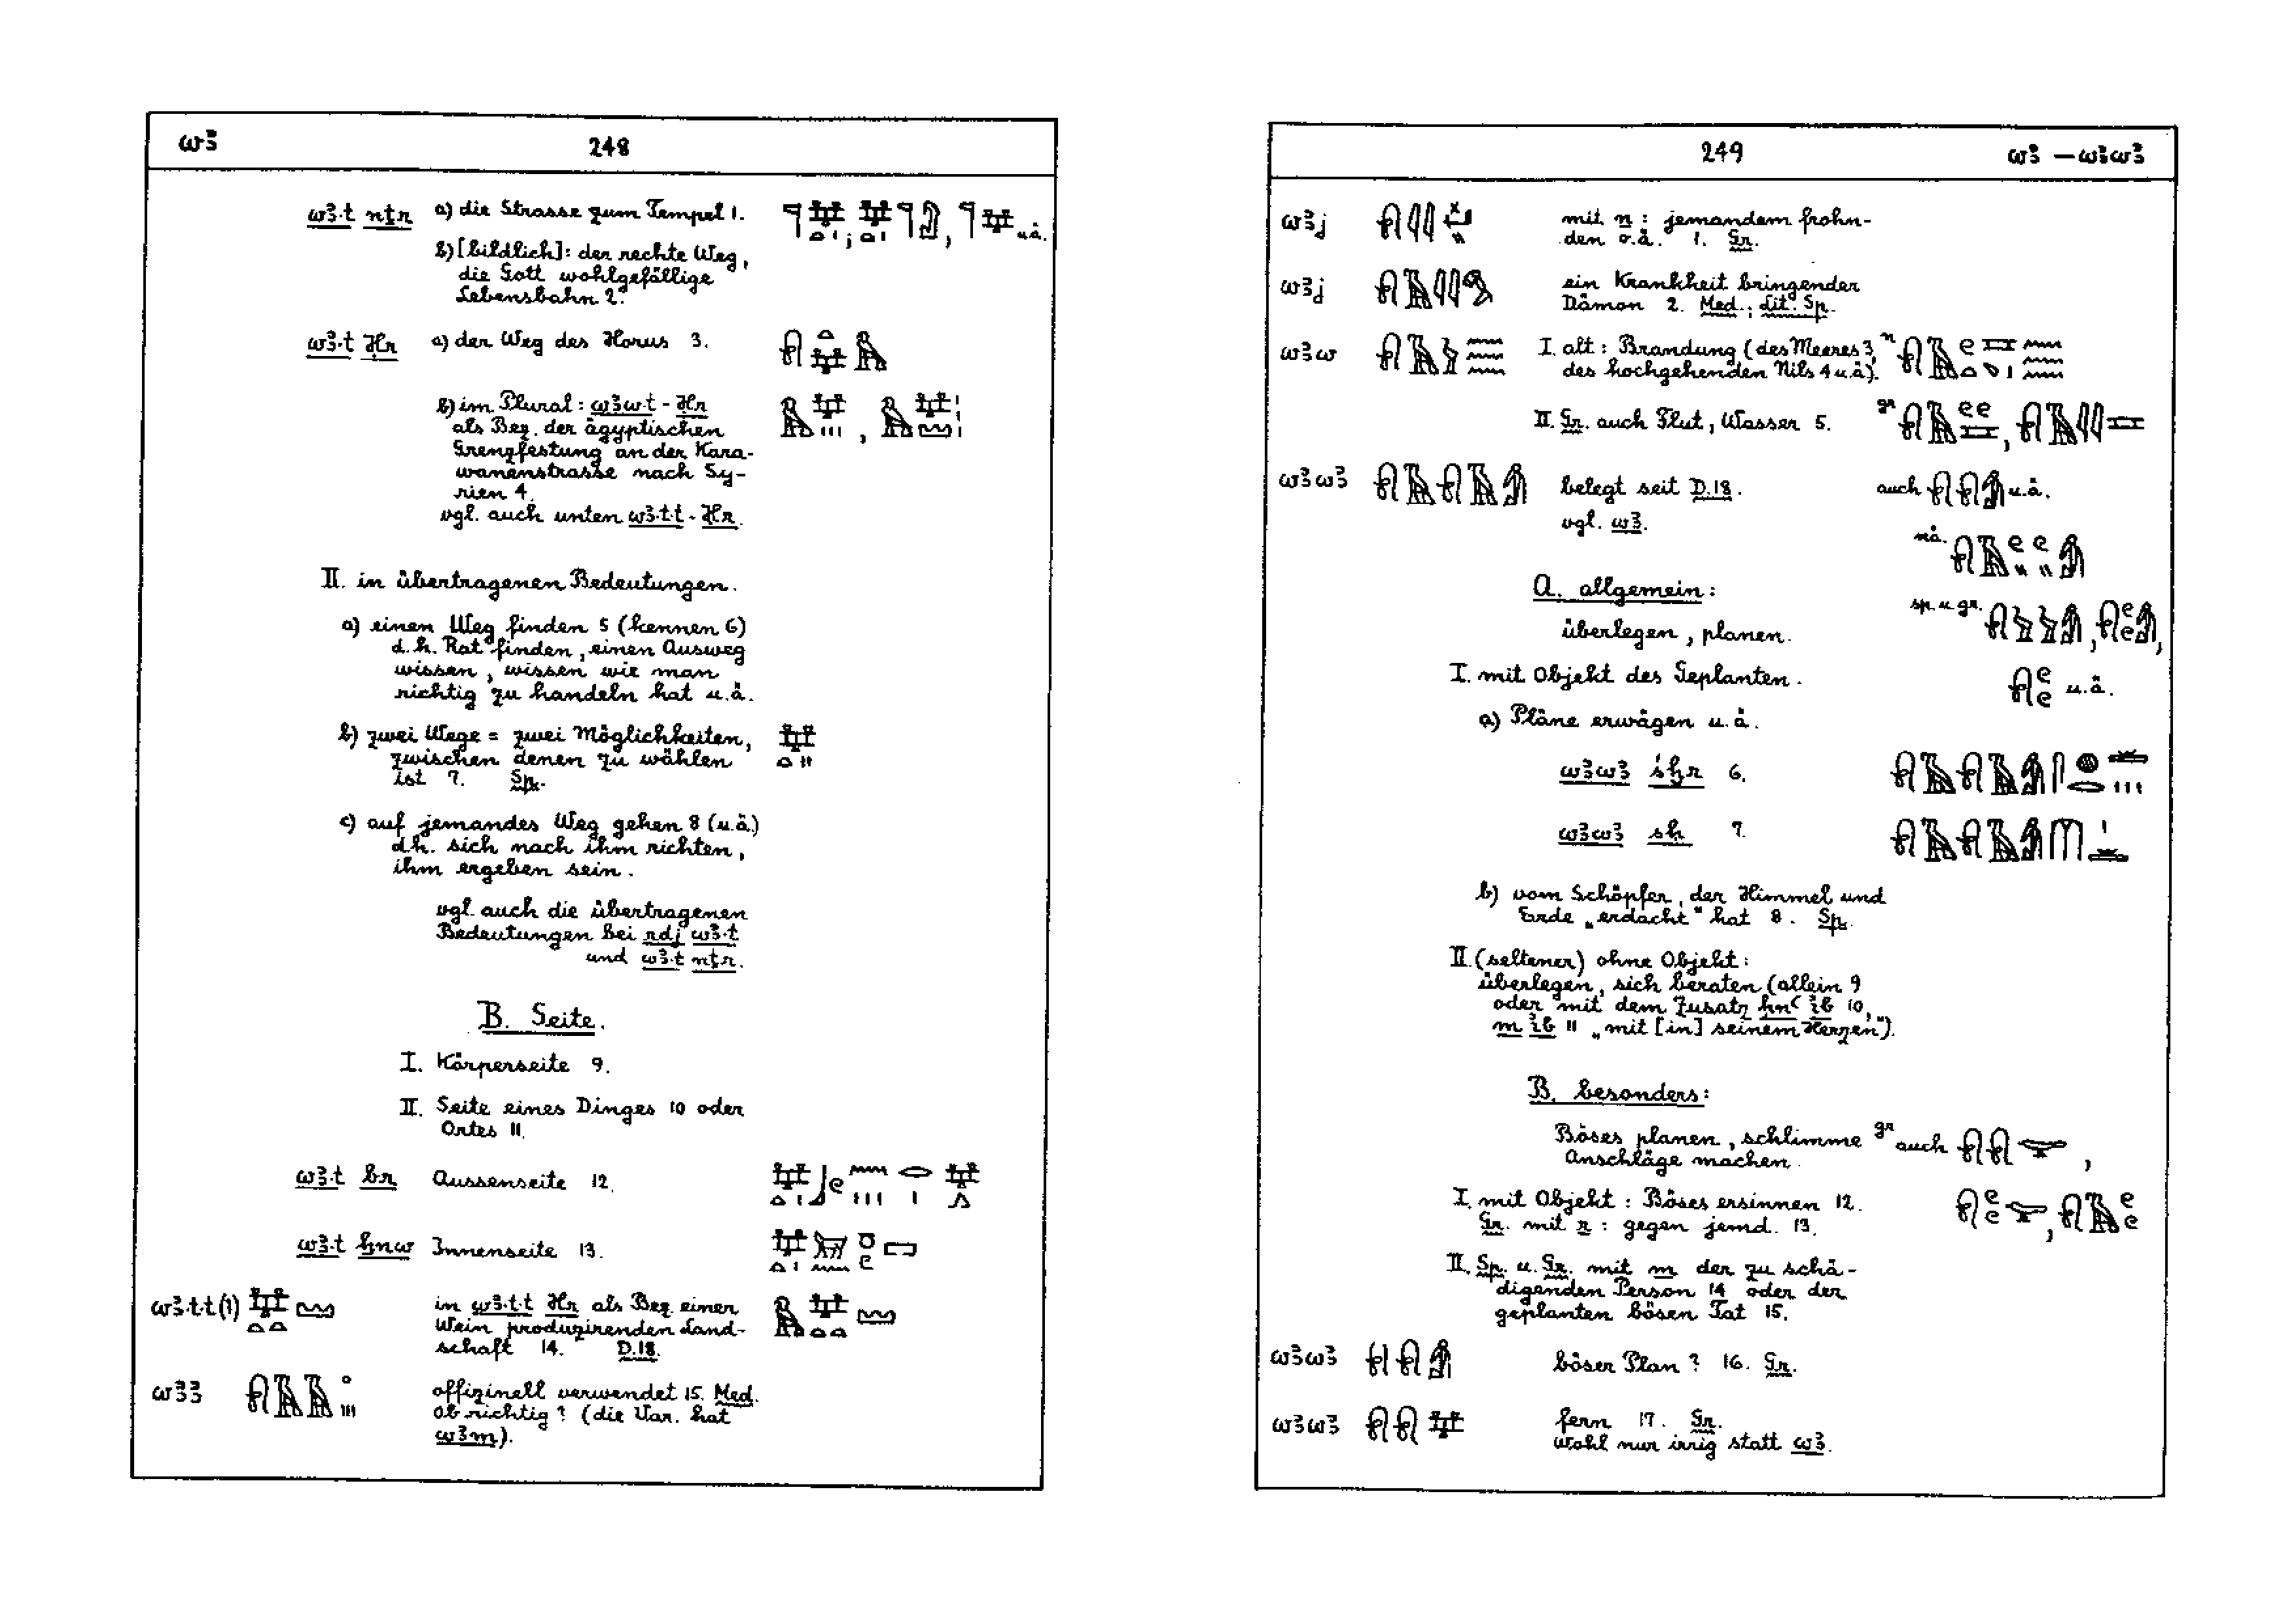 wꜣ 248
wꜣ.t nṯr a) die Strasse zum Tempel 1.
b) [bildlich]: der rechte Weg,
die Gott wohlgefällige
Lebensbahn 2.
u.ä.
wꜣ.t Ḥr a) der Weg des Horus 3.
b) im Plural: wꜣw.t - Ḥr
als Bez. der ägyptischen
Grenzfestung an der Kara-
wanenstrasse nach Sy-
rien 4.
vgl. auch unten wꜣ.t.t - Ḥr.
II. in übertragenen Bedeutungen.
a) einen Weg finden 5 (kennen 6)
d.h. Rat finden, einen Ausweg
wissen, wissen wie man
richtig zu handeln hat u.ä.
b) zwei Wege = zwei Möglichkeiten,
zwischen denen zu wählen
ist 7. Sp.
c) auf jemandes Weg gehen 8 (u.ä.)
d.h. sich nach ihm richten,
ihm ergeben sein.
vgl. auch die übertragenen
Bedeutungen bei rdj wꜣ.t
und wꜣ.t nṯr.
B. Seite.
I. Körperseite 9.
II. Seite eines Dinges 10 oder
Ortes 11.
wꜣ.t br Aussenseite 12.
wꜣ.t ẖnw Innenseite 13.
wꜣ.t.t (?) in wꜣ.t.t Ḥr als Bez. einer
Wein produzirenden Land-
schaft 14. D.18.
wꜣꜣ offizinell verwendet 15. Med.
Ob richtig? (die Var. hat
wꜣm).
249 wꜣ — wꜣwꜣ
wꜣj mit n: jemandem frohn-
den o.ä. 1. Gr.
wꜣj ein Krankheit bringender
Dämon 2. Med.; Lit. Sp.
wꜣw I. alt: Brandung (des Meeres 3, n
des hochgehenden Nils 4 u.ä.).
II. Gr. auch Flut, Wasser 5. gr
wꜣwꜣ belegt seit D.18. auch u.ä.
vgl. wꜣ.
nä.
A. allgemein:
sp. u. gr.
überlegen, planen.
I. mit Objekt des Geplanten. u.ä.
a) Pläne erwägen u.ä.
wꜣwꜣ śḫr 6.
wꜣwꜣ sḫ 7.
b) vom Schöpfer, der Himmel und
Erde „erdacht" hat 8. Sp.
II. (seltener) ohne Objekt:
überlegen, sich beraten (allein 9
oder mit dem Zusatz ḥnꜥ ı͗b 10,
m ı͗b 11 „mit [in] seinem Herzen").
B. besonders:
Böses planen, schlimme gr auch
Anschläge machen.
I. mit Objekt: Böses ersinnen 12.
Gr. mit r: gegen jemd. 13.
II. Sp. u. Gr. mit m der zu schä-
digenden Person 14 oder der
geplanten bösen Tat 15.
wꜣwꜣ böser Plan? 16. Gr.
wꜣwꜣ fern 17. Gr.
wohl nur irrig statt wꜣ.